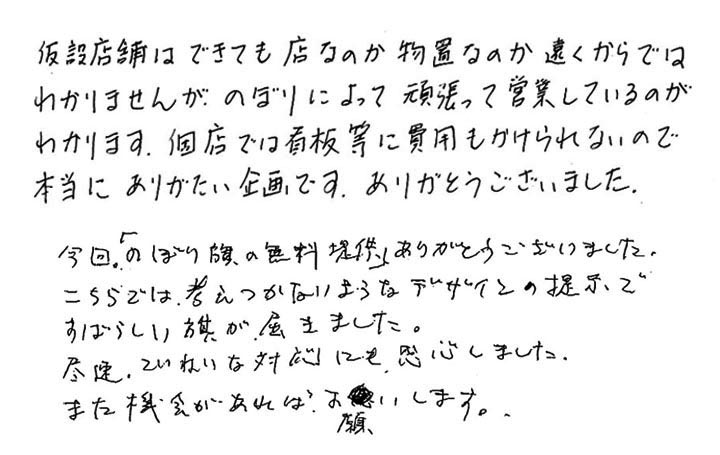 仮設店舗はできても店なのか物置なのか遠くからでは
わかりませんが、のぼりによって頑張って営業しているのが
わかります。個店では看板等に費用もかけられないので
本当にありがたい企画です。ありがとうございました。
今回。「のぼり旗の無料提供」ありがとうございました。
こちらでは、考えつかないようなデザインの提示で
すばらしい旗が、届きました。
迅速、ていねいな対応にも、感心しました。
また機会があれば、お願いします。